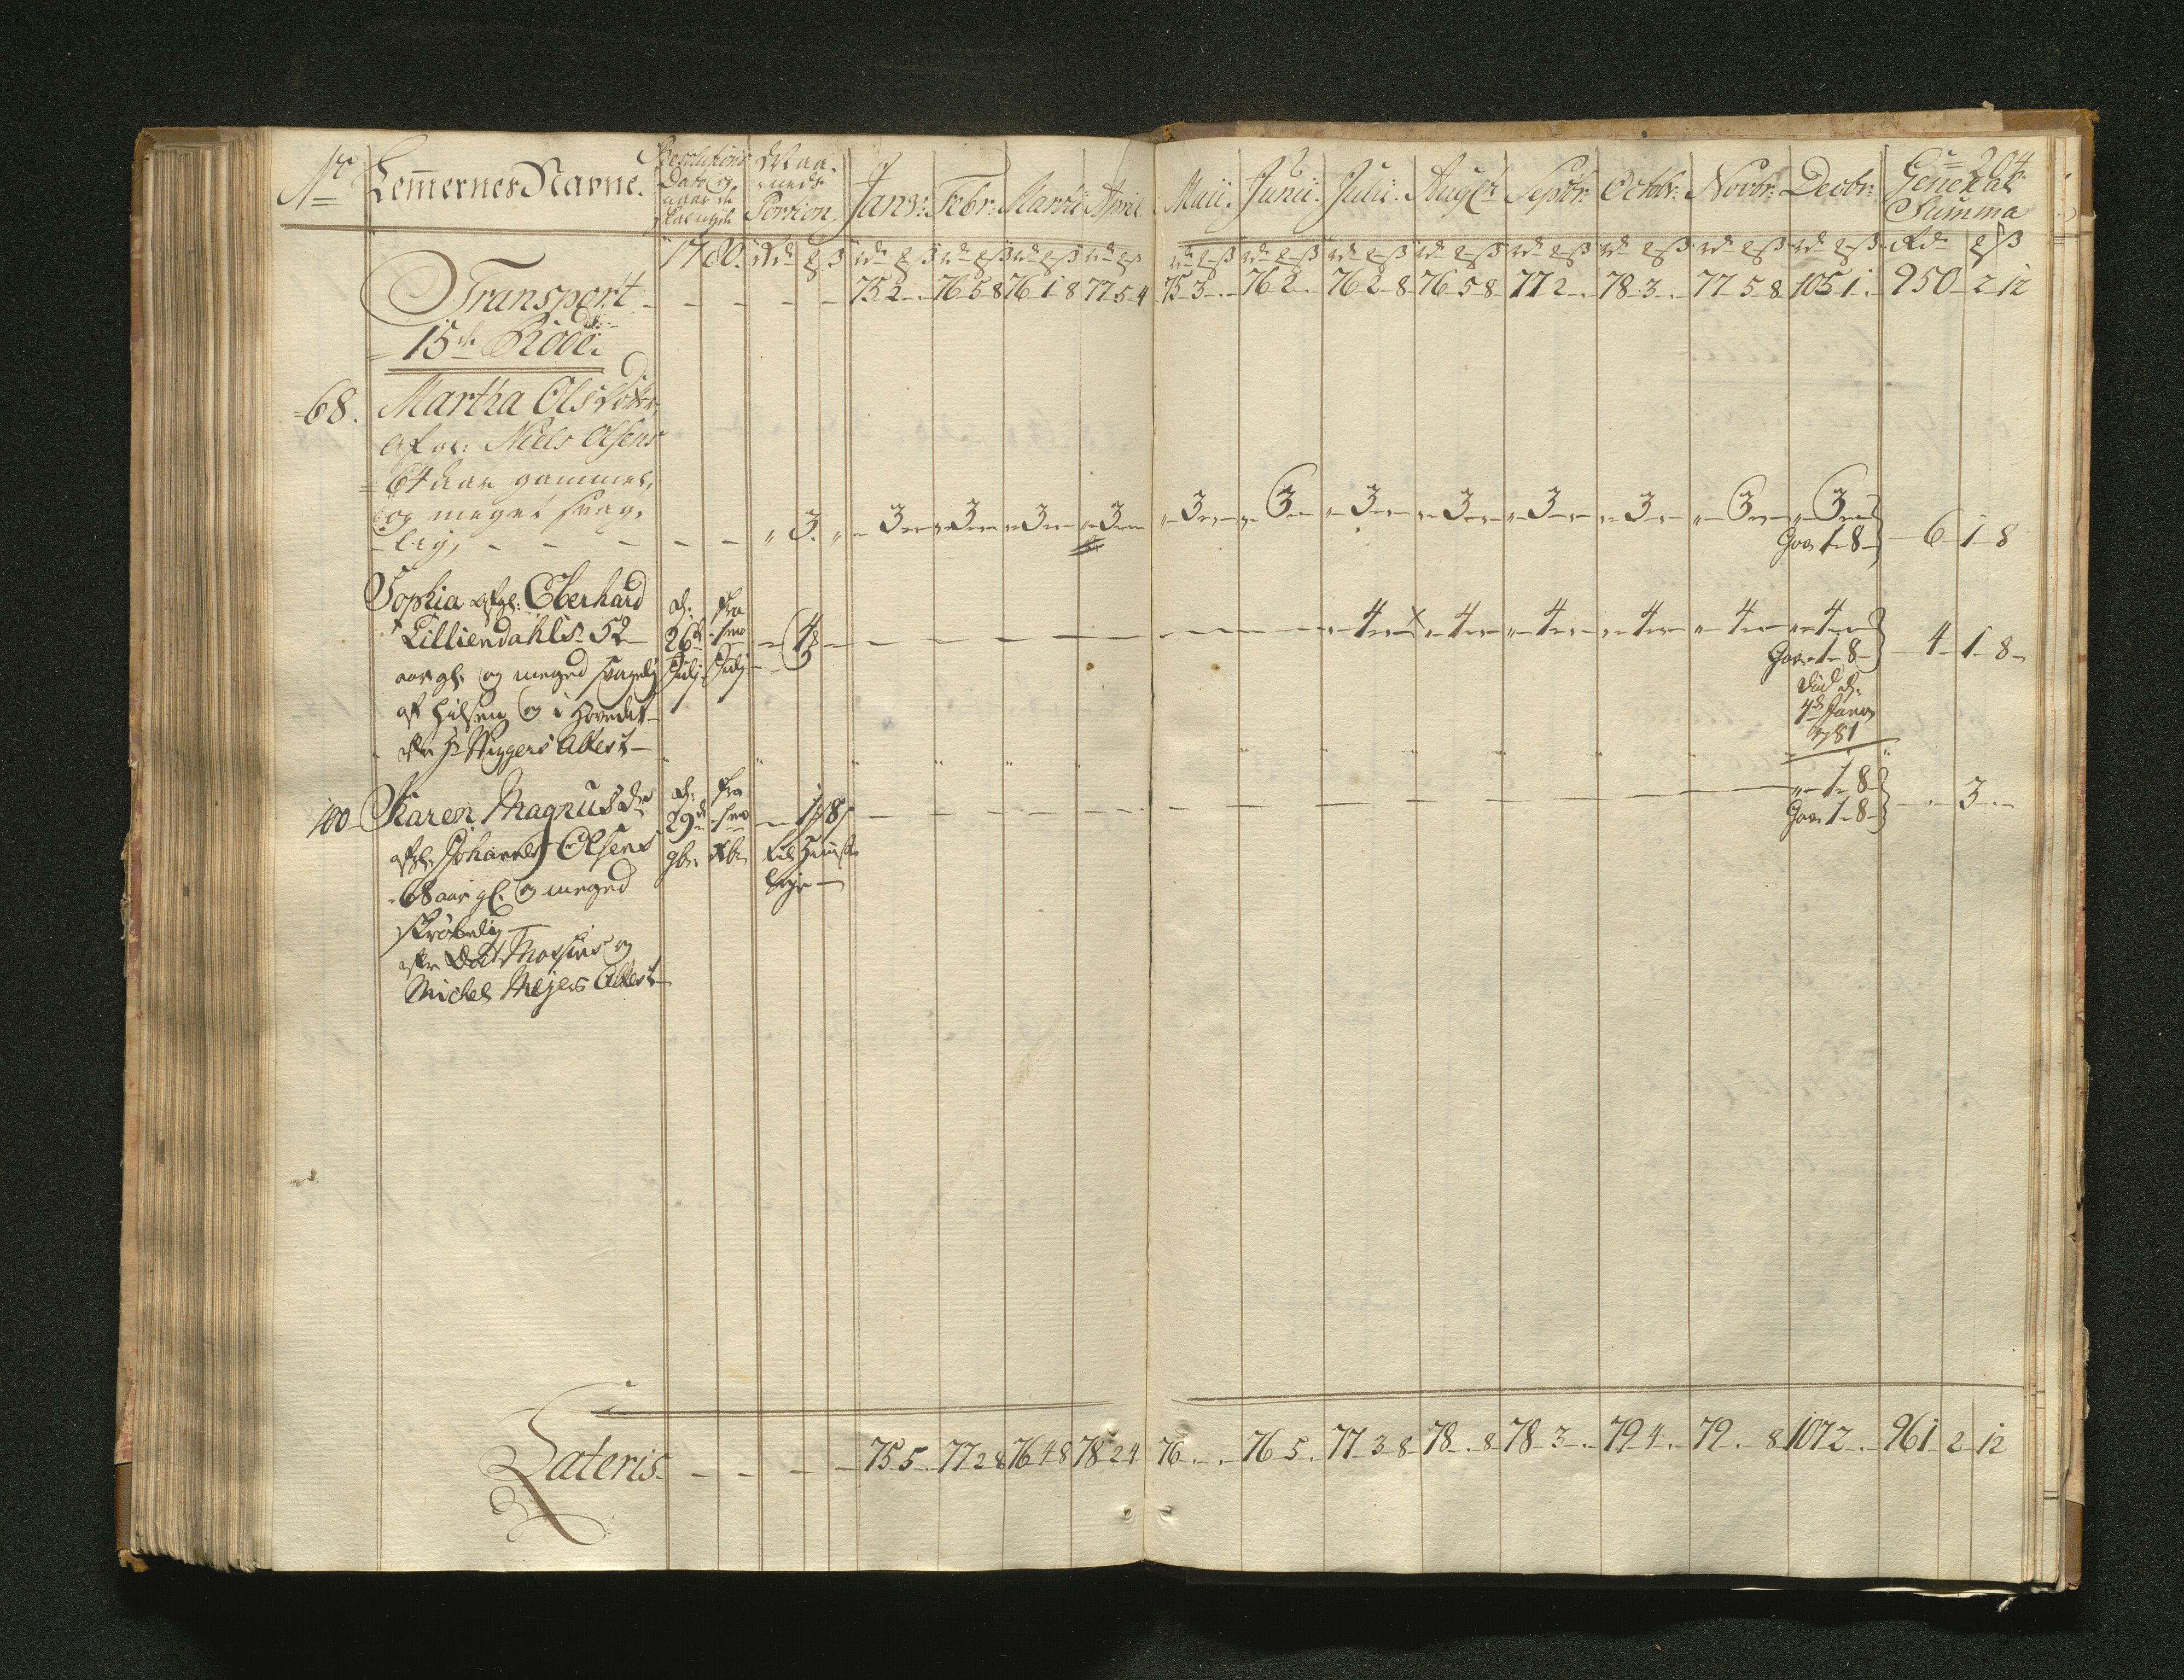 No Lem̅ernes Navne. Resolutions Dato og naar de skal nyde Maa-neds Portion. Janv: Febr: Martii April Maii. Junii. Julii. Augst Septbr: Octobr: Novbr: Decbr: General Summa
204
1780. Rd ß rd ß rd ß rd ß rd ß rd ß rd ß rd ß rd ß rd ß rd ß rd ß rd ß Rd ß
Transport - - - - - 75 2 . 76 5 8 76 1 8 77 5 4 75 3 . 76 2 . 76 2 8 76 5 8 77 2 . 78 3 . 77 5 8 105 1 . 950 2 12
15de Rode.
68. Martha Olsdotter,
afgl: Niels Olsens
64 aar gammel,
og meget svage-
lig, - - - - - " 3. " 3 3 3 3 3 3 3 3 3 3 3 3
1 8 6 1 8
Sophia afgl: Eberhard d: fra
Lilliendahls 52 26de 4 4 4 4 4 4 4
aar gl. og meged svagelig Julij Julij 1 8 4 1 8
af Hilsen og i Hovedet Død d:
efter Hr Wiggers Attest 4de Janv
1781
100 Karen Magnusdr d: fra 1 8
afgl. Johannes Olsens 29de 1 8 1 8 3
68 aar gl. og meged 9br Xbr til Huus
skrøbelig leje
efter Od Mossins og
Michel Mejers Attest
Lateris - - - - 75 5 . 77 2 8 76 4 8 78 2 4 76 . . 76 5 . 77 3 8 78 . 8 78 3 . 79 4 . 79 . 8 107 2 . 961 2 12